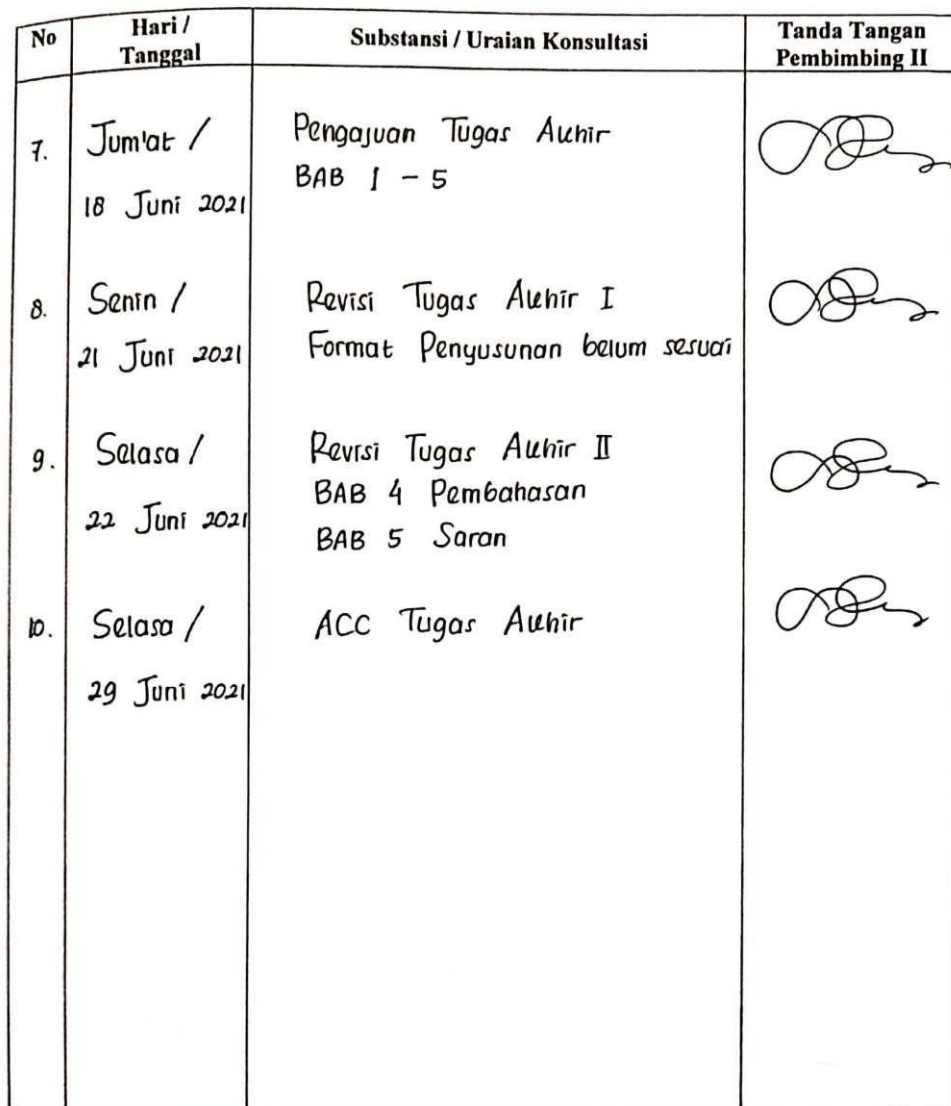 No
Hari /
Tanggal
Substansi / Uraian Konsultasi
Tanda Tangan
Pembimbing II
7.
Jum'at /
18 Juni 2021
Pengajuan Tugas Akhir
BAB 1 - 5
8.
Senin /
21 Juni 2021
Revisi Tugas Akhir I
Format Penyusunan belum sesuai
9.
Selasa /
22 Juni 2021
Revisi Tugas Akhir II
BAB 4 Pembahasan
BAB 5 Saran
10.
Selasa /
29 Juni 2021
ACC Tugas Akhir